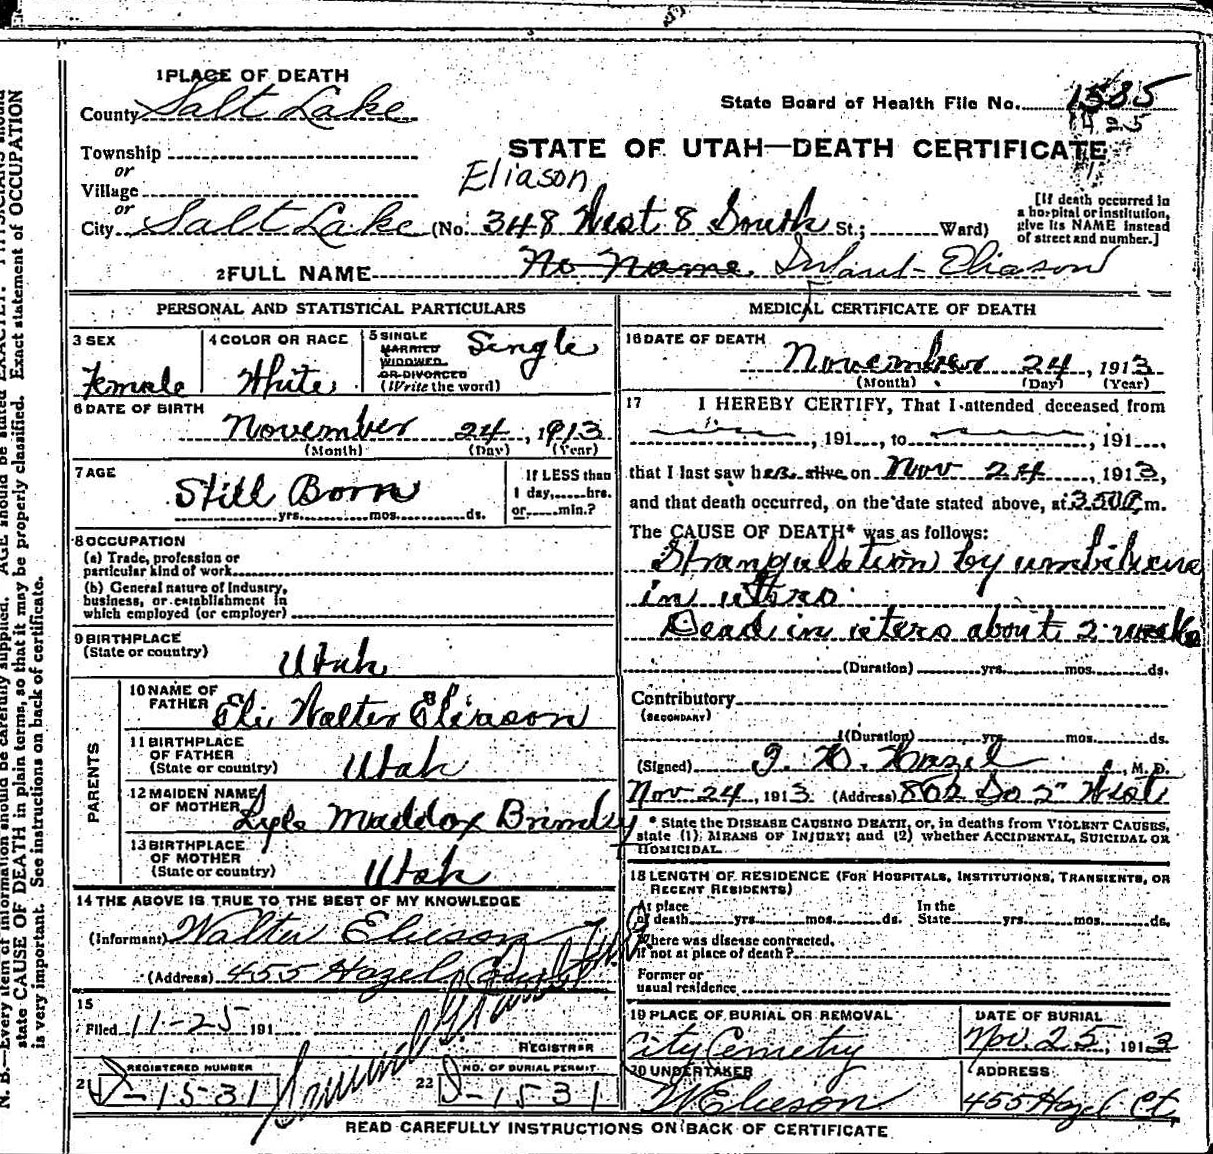 1 PLACE OF DEATH
County Salt Lake
State Board of Health File No. 1585
1425
Township
STATE OF UTAH—DEATH CERTIFICATE
or
Village
Eliason
or
City Salt Lake (No. 348 West 8 South St.; Ward)
[If death occurred in a hospital or institution, give its NAME instead of street and number.]
2 FULL NAME No Name. Infant Eliason
PERSONAL AND STATISTICAL PARTICULARS
3 SEX Female
4 COLOR OR RACE White
5 SINGLE MARRIED WIDOWED OR DIVORCED (Write the word) Single
6 DATE OF BIRTH
November 24, 1913
(Month) (Day) (Year)
7 AGE
Still Born
yrs. mos. ds.
If LESS than
1 day, hrs.
or min.?
8 OCCUPATION
(a) Trade, profession or
particular kind of work
(b) General nature of Industry,
business, or establishment in
which employed (or employer)
9 BIRTHPLACE
(State or country)
Utah
PARENTS
10 NAME OF FATHER Eli Walter Eliason
11 BIRTHPLACE OF FATHER (State or country) Utah
12 MAIDEN NAME OF MOTHER Lyle Maddox Brimley
13 BIRTHPLACE OF MOTHER (State or country) Utah
14 THE ABOVE IS TRUE TO THE BEST OF MY KNOWLEDGE
(Informant) Walter Elieson
(Address) 455 Hazel
15
Filed 11-25 191
REGISTRAR
REGISTERED NUMBER
21 D-1531
NO. OF BURIAL PERMIT
22 D-1531
MEDICAL CERTIFICATE OF DEATH
16 DATE OF DEATH
November 24, 1913
(Month) (Day) (Year)
17 I HEREBY CERTIFY, That I attended deceased from
, 191 , to , 191 ,
that I last saw her alive on Nov 24, 1913,
and that death occurred, on the date stated above, at 3.50 P.m.
The CAUSE OF DEATH* was as follows:
Strangulation by umbilicus
in utero
Dead in utero about 2 weeks
(Duration) yrs. mos. ds.
Contributory
(SECONDARY)
(Duration) yrs. mos. ds.
(Signed) J. D. Hazel, M. D.
Nov 24, 1913 (Address) 802 So 2nd West
* State the DISEASE CAUSING DEATH, or, in deaths from VIOLENT CAUSES,
state (1) MEANS OF INJURY; and (2) whether ACCIDENTAL, SUICIDAL OR
HOMICIDAL.
18 LENGTH OF RESIDENCE (FOR HOSPITALS, INSTITUTIONS, TRANSIENTS, OR
RECENT RESIDENTS)
At place
of death yrs. mos. ds.
In the
State yrs. mos. ds.
Where was disease contracted,
if not at place of death?
Former or
usual residence
19 PLACE OF BURIAL OR REMOVAL
City Cemetry
DATE OF BURIAL
Nov. 25, 1913
20 UNDERTAKER
W Elieson
ADDRESS
455 Hazel Ct.
READ CAREFULLY INSTRUCTIONS ON BACK OF CERTIFICATE
state CAUSE OF DEATH in plain terms, so that it may be properly classified. Exact statement of OCCUPATION
is very important. See instructions on back of certificate.